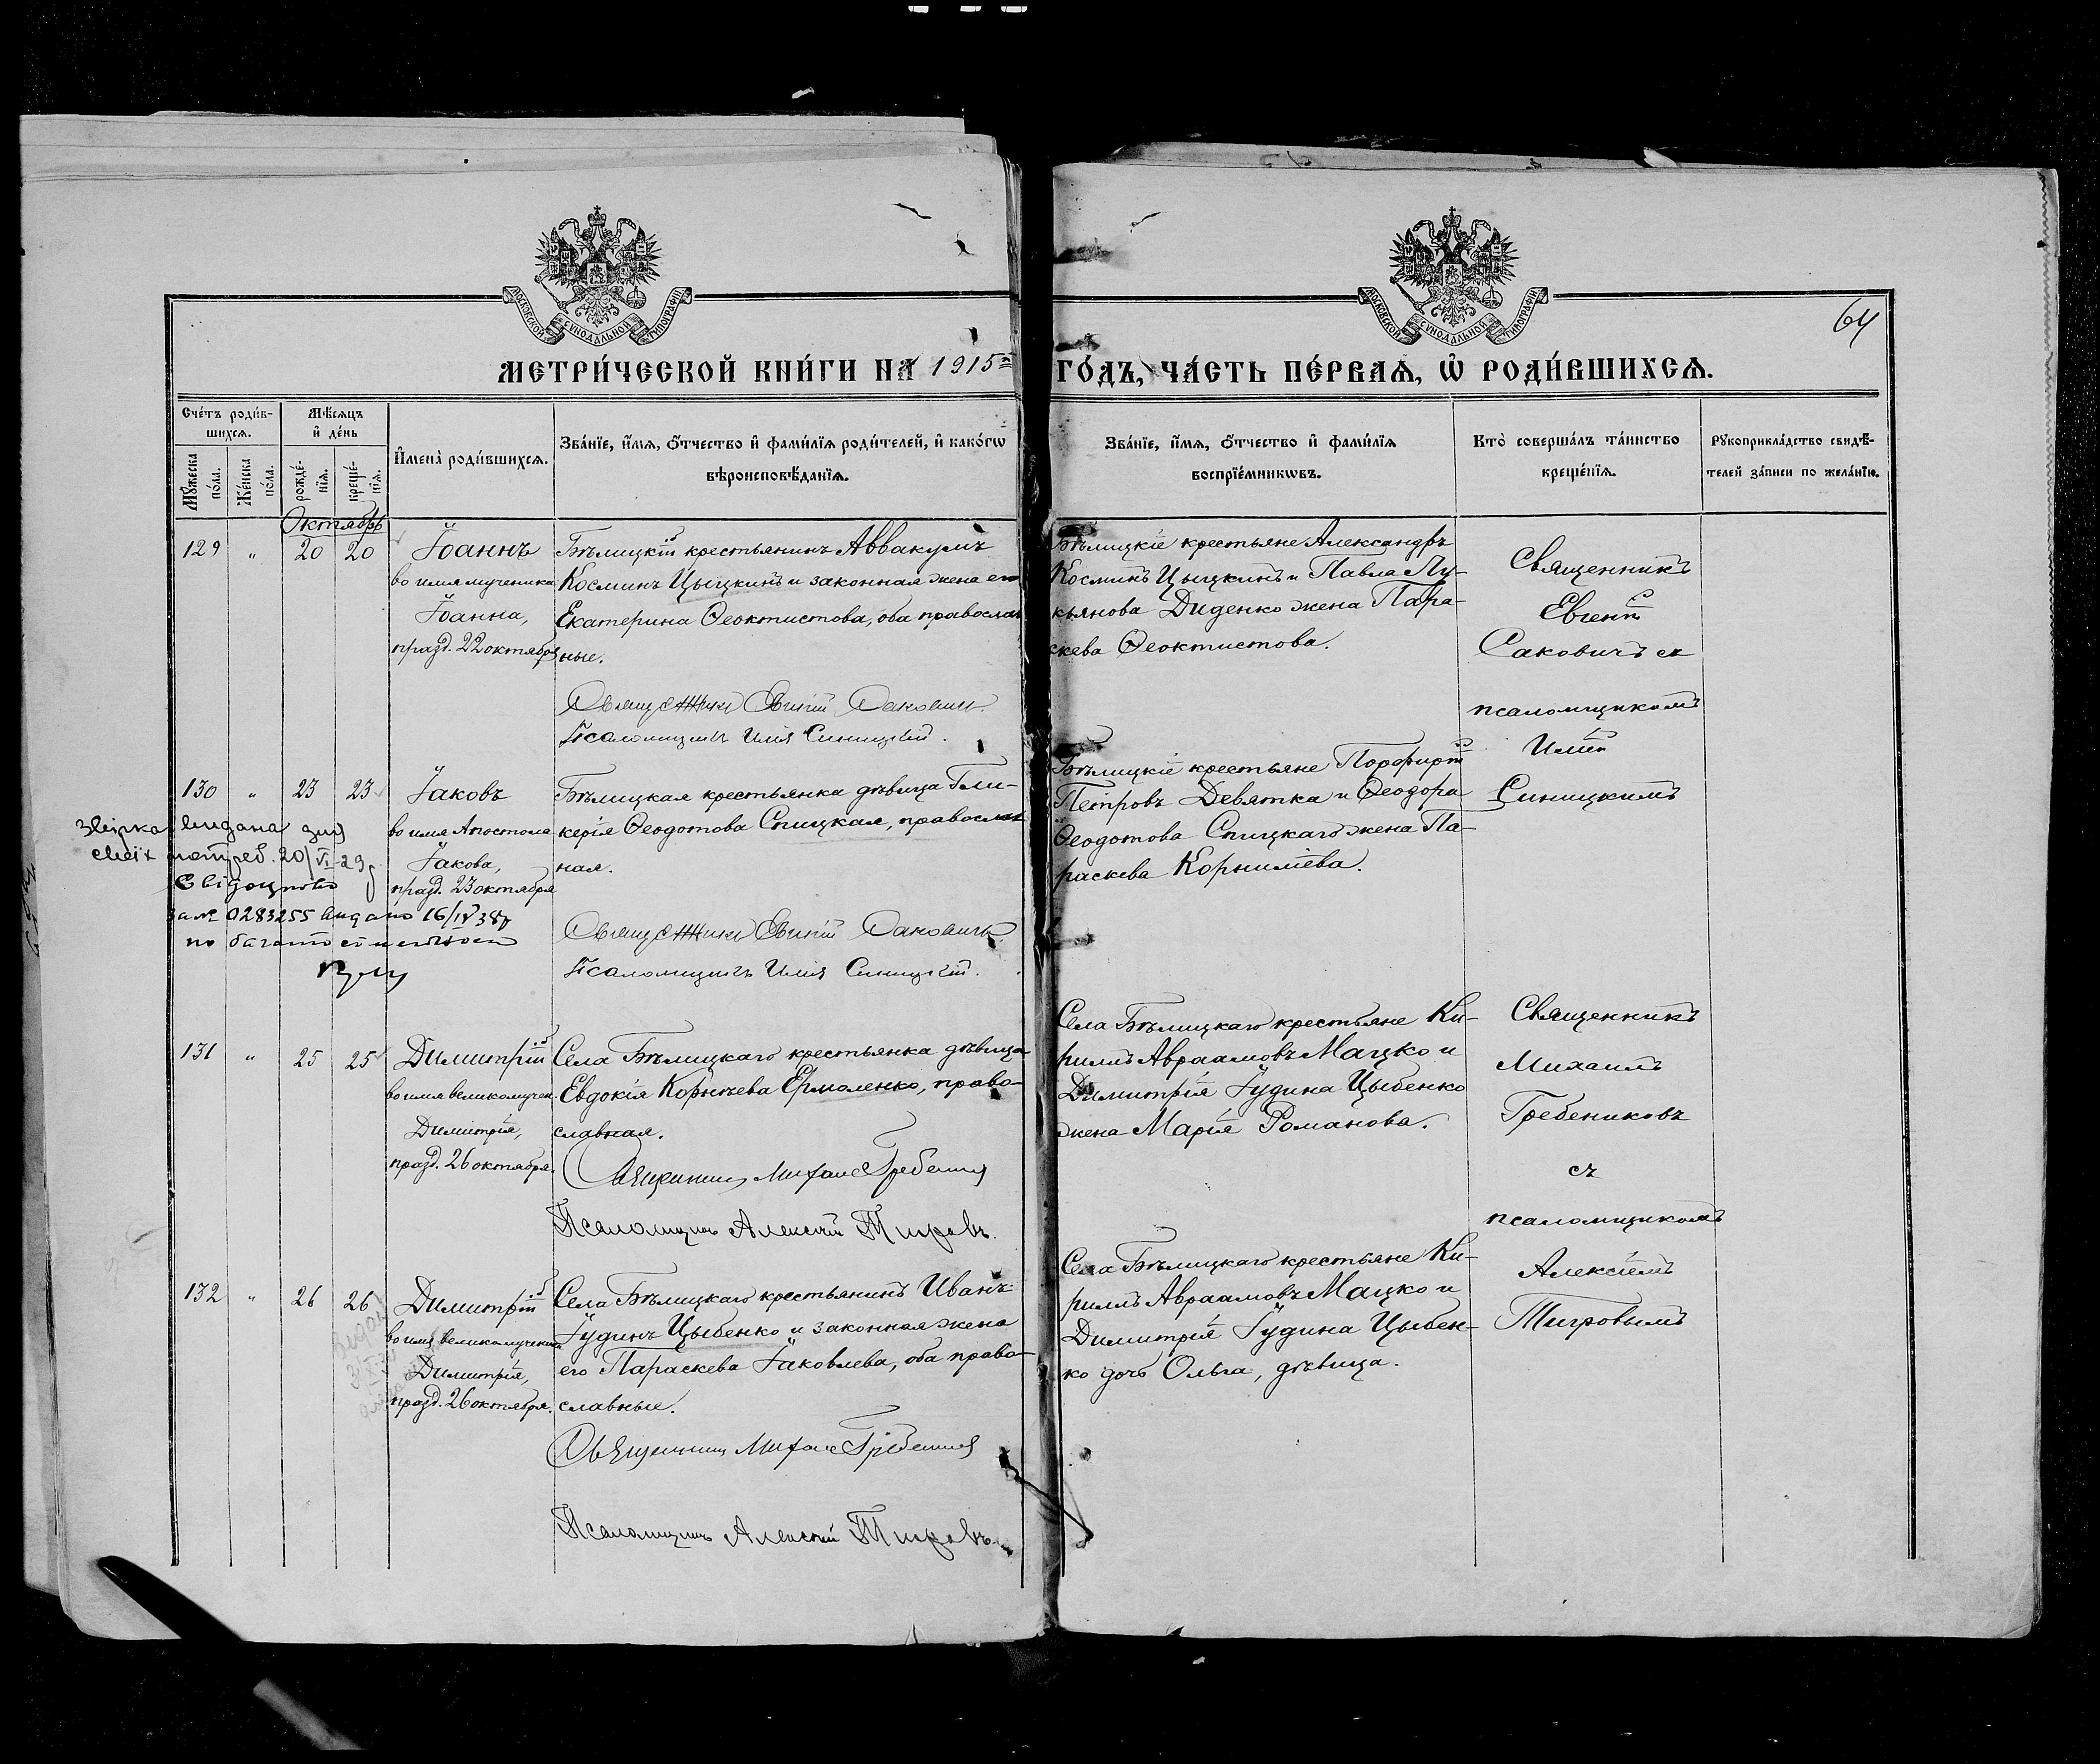 МОСКОВСКОЙ СѴНОДАЛЬНОЙ ТИПОГРАФІИ
МОСКОВСКОЙ СѴНОДАЛЬНОЙ ТИПОГРАФІИ
64
МЕТРИ́ЧЕСКОЙ КНИ́ГИ НА 1915 ГО́ДЪ, ЧА́СТЬ ПЕ́РВАѦ, Ѡ҆ РОДИ́ВШИХСѦ.
Сче́тъ роди́в-
шихсѧ.
Мꙋ́жеска
по́ла.
Же́нска
по́ла.
Мѣ́сѧцъ
и҆ де́нь
рожде́-
нїѧ.
креще́-
нїѧ.
И҆мена̀ роди́вшихсѧ.
Зва́нїе, и҆́мѧ, ѻ҆́тчество и҆ фами́лїѧ роди́телей, и҆ како́гѡ
вѣроисповѣ́данїѧ.
Зва́нїе, и҆́мѧ, ѻ҆́тчество и҆ фами́лїѧ
воспрїе́мникѡвъ.
Кто̀ соверша́лъ та́инство
креще́нїѧ.
Рꙋкоприкла́дство свидѣ́-
телей за́писи по жела́нїю.
Октябрь
129 " 20 20
Іоаннъ
во имя мученика
Іоанна,
празд. 22 октября
Бѣлицкій крестьянинъ Аввакумъ
Косминъ Цыцкинъ и законная жена его
Екатерина Ѳеоктистова, оба православ
ные.
Священникъ Евгеній Саковичъ.
Псаломщикъ Илія Синицкій.
Бѣлицкіе крестьяне Александръ
Косминъ Цыцкинъ и Павла Лу-
кьянова Диденко жена Пара-
скева Ѳеоктистова.
Священникъ
Евгеній
Саковичъ съ
псаломщикомъ
Иліей
Синицкимъ
130 " 23 23
Іаковъ
во имя Апостола
Іакова,
празд. 23 октября
Бѣлицкая крестьянка дѣвица Гли-
керія Ѳеодотова Спицкая, православ
ная.
Священникъ Евгеній Саковичъ.
Псаломщикъ Илія Синицкій.
Бѣлицкіе крестьяне Порфирій
Петровъ Девятка и Ѳеодора
Ѳеодотова Спицкаго жена Па-
раскева Корниліева.
видана для
потреб. 20/VI-29
Свідоцтво
за № 0283255 видано 16/IV 38р
по
131 " 25 25
Димитрій
во имя великомучен.
Димитрія,
празд. 26 октября.
Села Бѣлицкаго крестьянка дѣвица
Евдокія Корнѣева Ермоленко, право-
славная.
Священникъ Михаилъ Гребениковъ
Псаломщикъ Алексій Тигровъ.
Села Бѣлицкаго крестьяне Ки-
риллъ Авраамовъ Мацко и
Димитрія Іудина Цыбенко
жена Марія Романова.
Священникъ
Михаилъ
Гребениковъ
съ
псаломщикомъ
Алексіемъ
Тигровымъ
132 " 26 26
Димитрій
во имя великомученика
Димитрія,
празд. 26 октября.
Села Бѣлицкаго крестьянинъ Иванъ
Іудинъ Цыбенко и законная жена
его Параскева Іаковлева, оба право-
славные.
Священникъ Михаилъ Гребениковъ
Псаломщикъ Алексій Тигровъ.
Села Бѣлицкаго крестьяне Ки-
риллъ Авраамовъ Мацко и
Димитрія Іудина Цыбен-
ко дочь Ольга, дѣвица.